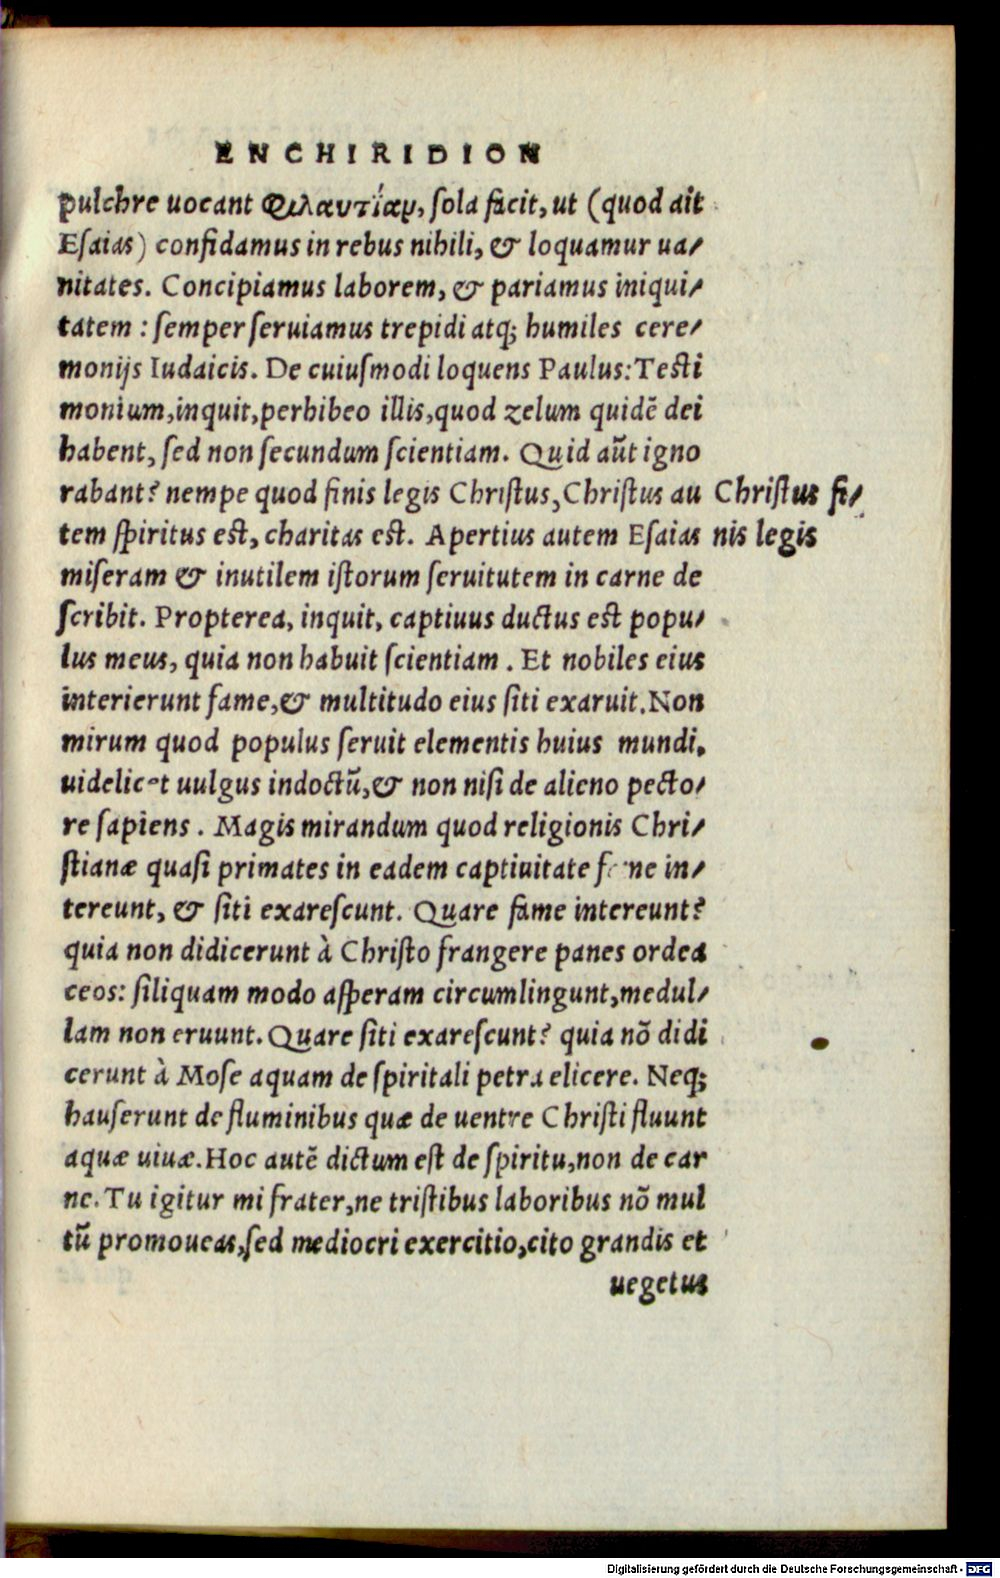 ENCHIRIDION
pulchre uocant Φιλαυτίαν, ſola facit, ut (quod ait
Eſaias) confidamus in rebus nihili, & loquamur ua⸗
nitates. Concipiamus laborem, & pariamus iniqui⸗
tatem : ſemper ſeruiamus trepidi atq; humiles cere⸗
monijs Iudaicis. De cuiuſmodi loquens Paulus: Teſti
monium, inquit, perhibeo illis, quod zelum quidē dei
habent, ſed non ſecundum ſcientiam. Quid aūt igno
rabant? nempe quod finis legis Chriſtus, Chriſtus au
tem ſpiritus eſt, charitas eſt. Apertius autem Eſaias
miſeram & inutilem iſtorum ſeruitutem in carne de
ſcribit. Propterea, inquit, captiuus ductus eſt popu⸗
lus meus, quia non habuit ſcientiam . Et nobiles eius
interierunt fame, & multitudo eius ſiti exaruit. Non
mirum quod populus ſeruit elementis huius mundi,
uidelicet uulgus indoctū, & non niſi de alieno pecto⸗
re ſapiens . Magis mirandum quod religionis Chri⸗
ſtianæ quaſi primates in eadem captiuitate fame in⸗
tereunt, & ſiti exareſcunt. Quare fame intereunt?
quia non didicerunt à Chriſto frangere panes ordea
ceos: ſiliquam modo aſperam circumlingunt, medul⸗
lam non eruunt. Quare ſiti exareſcunt? quia nō didi
cerunt à Moſe aquam de ſpiritali petra elicere. Neq;
hauſerunt de fluminibus quæ de uentre Chriſti fluunt
aquæ uiuæ. Hoc autē dictum eſt de ſpiritu, non de car
ne. Tu igitur mi frater, ne triſtibus laboribus nō mul
tū promoueas, ſed mediocri exercitio, cito grandis et
uegetus
Chriſtus fi⸗
nis legis
Digitalisierung gefördert durch die Deutsche Forschungsgemeinschaft - DFG